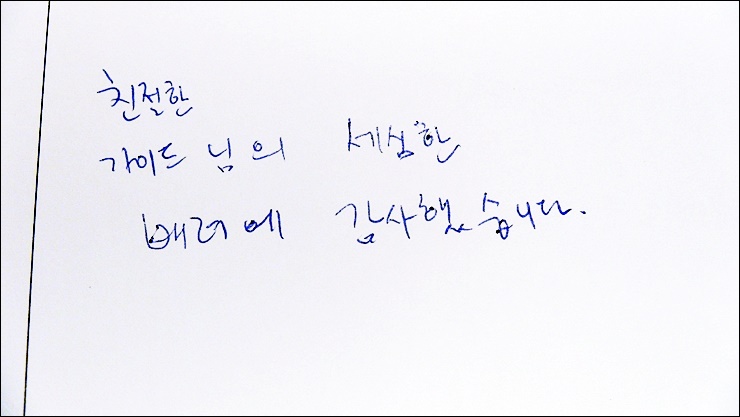 친절한
가이드님의 세심한
배려에 감사했습니다.